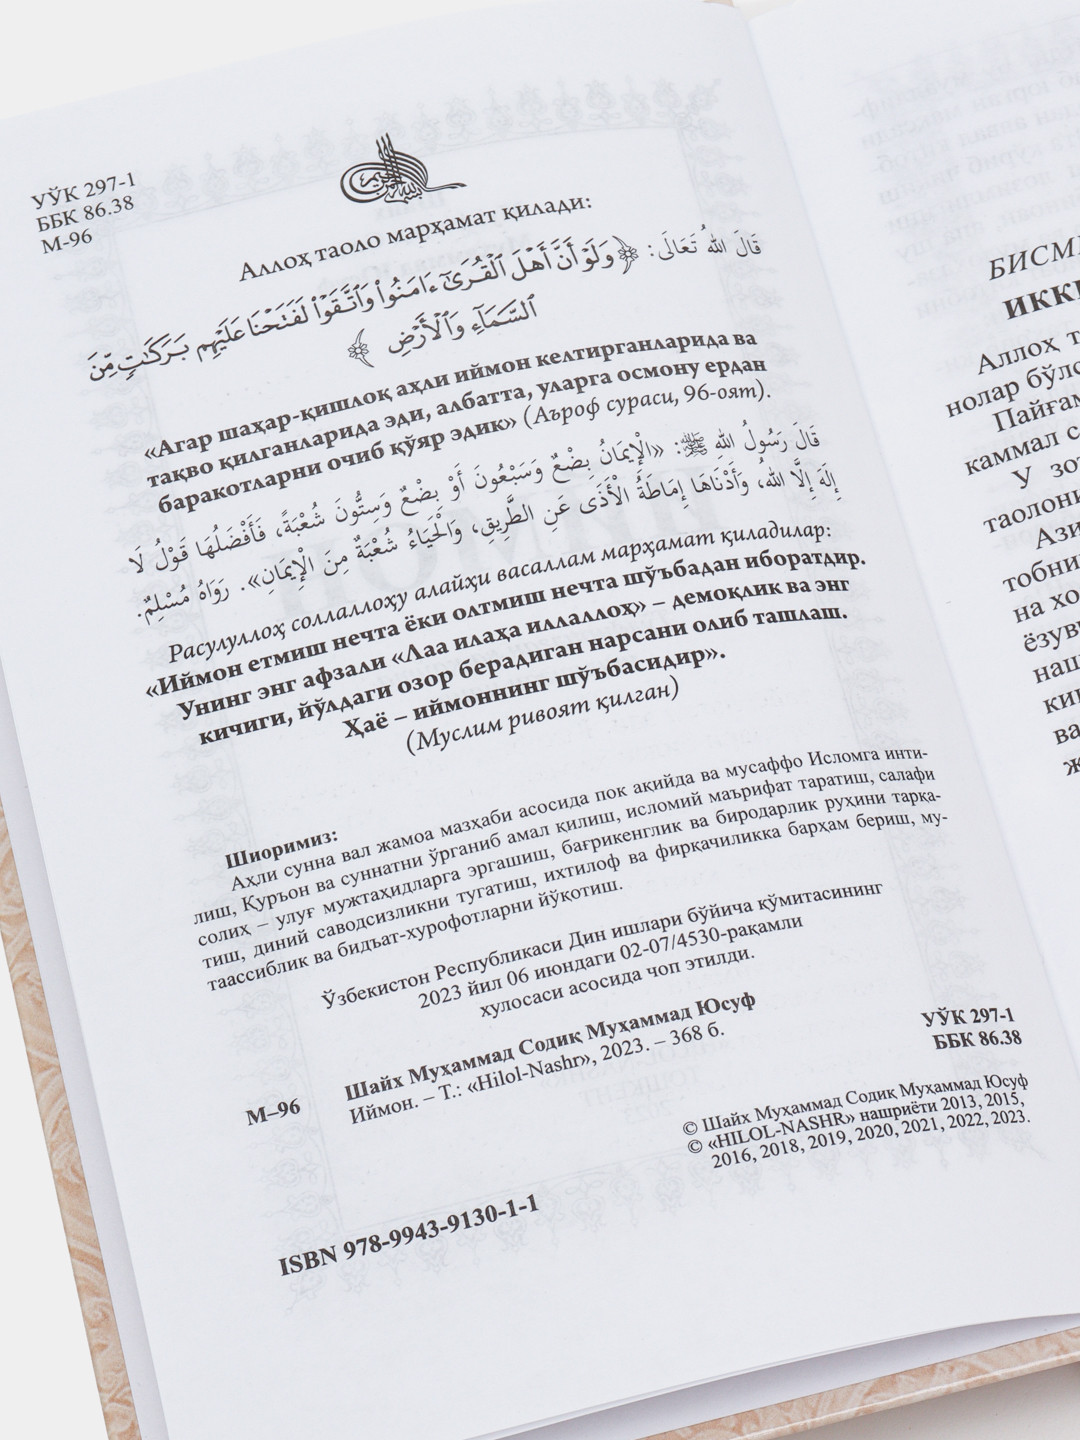 УЎК 297-1
ББК 86.38
М-96
Аллоҳ таоло марҳамат қилади:
قَالَ اللهُ تَعَالَى: ﴿وَلَوْ أَنَّ أَهْلَ ٱلْقُرَىٰٓ ءَامَنُوا۟ وَٱتَّقَوْا۟ لَفَتَحْنَا عَلَيْهِم بَرَكَٰتٍ مِّنَ
ٱلسَّمَآءِ وَٱلْأَرْضِ ﴾
«Агар шаҳар-қишлоқ аҳли иймон келтирганларида ва
тақво қилганларида эди, албатта, уларга осмону ердан
баракотларни очиб қўяр эдик» (Аъроф сураси, 96-оят).
قَالَ رَسُولُ اللهِ ﷺ: «الْإِيمَانُ بِضْعٌ وَسَبْعُونَ أَوْ بِضْعٌ وَسِتُّونَ شُعْبَةً، فَأَفْضَلُهَا قَوْلُ لَا
إِلَهَ إِلَّا اللهُ، وَأَدْنَاهَا إِمَاطَةُ الْأَذَى عَنِ الطَّرِيقِ، وَالْحَيَاءُ شُعْبَةٌ مِنَ الْإِيمَانِ». رَوَاهُ مُسْلِمٌ.
Расулуллоҳ соллаллоҳу алайҳи васаллам марҳамат қиладилар:
«Иймон етмиш нечта ёки олтмиш нечта шўъбадан иборатдир.
Унинг энг афзали «Лаа илаҳа иллаллоҳ» – демоқлик ва энг
кичиги, йўлдаги озор берадиган нарсани олиб ташлаш.
Ҳаё – иймоннинг шўъбасидир».
(Муслим ривоят қилган)
Шиоримиз:
Аҳли сунна вал жамоа мазҳаби асосида пок ақийда ва мусаффо Исломга инти-
лиш, Қуръон ва суннатни ўрганиб амал қилиш, исломий маърифат таратиш, салафи
солиҳ – улуғ мужтаҳидларга эргашиш, бағрикенглик ва биродарлик руҳини тарқа-
тиш, диний саводсизликни тугатиш, ихтилоф ва фирқачиликка барҳам бериш, му-
таассиблик ва бидъат-хурофотларни йўқотиш.
Ўзбекистон Республикаси Дин ишлари бўйича қўмитасининг
2023 йил 06 июндаги 02-07/4530-рақамли
хулосаси асосида чоп этилди.
Шайх Муҳаммад Содиқ Муҳаммад Юсуф
М–96 Иймон. – Т.: «Hilol-Nashr», 2023. – 368 б.
УЎК 297-1
ББК 86.38
© Шайх Муҳаммад Содиқ Муҳаммад Юсуф
© «HILOL-NASHR» нашриёти 2013, 2015,
2016, 2018, 2019, 2020, 2021, 2022, 2023.
ISBN 978-9943-9130-1-1
БИСМ
ИКК
Аллоҳ т
нолар бўл
Пайғам
каммал с
У зот
таолони
Ази
тобни
на хо
ёзув
наш
ки
ва